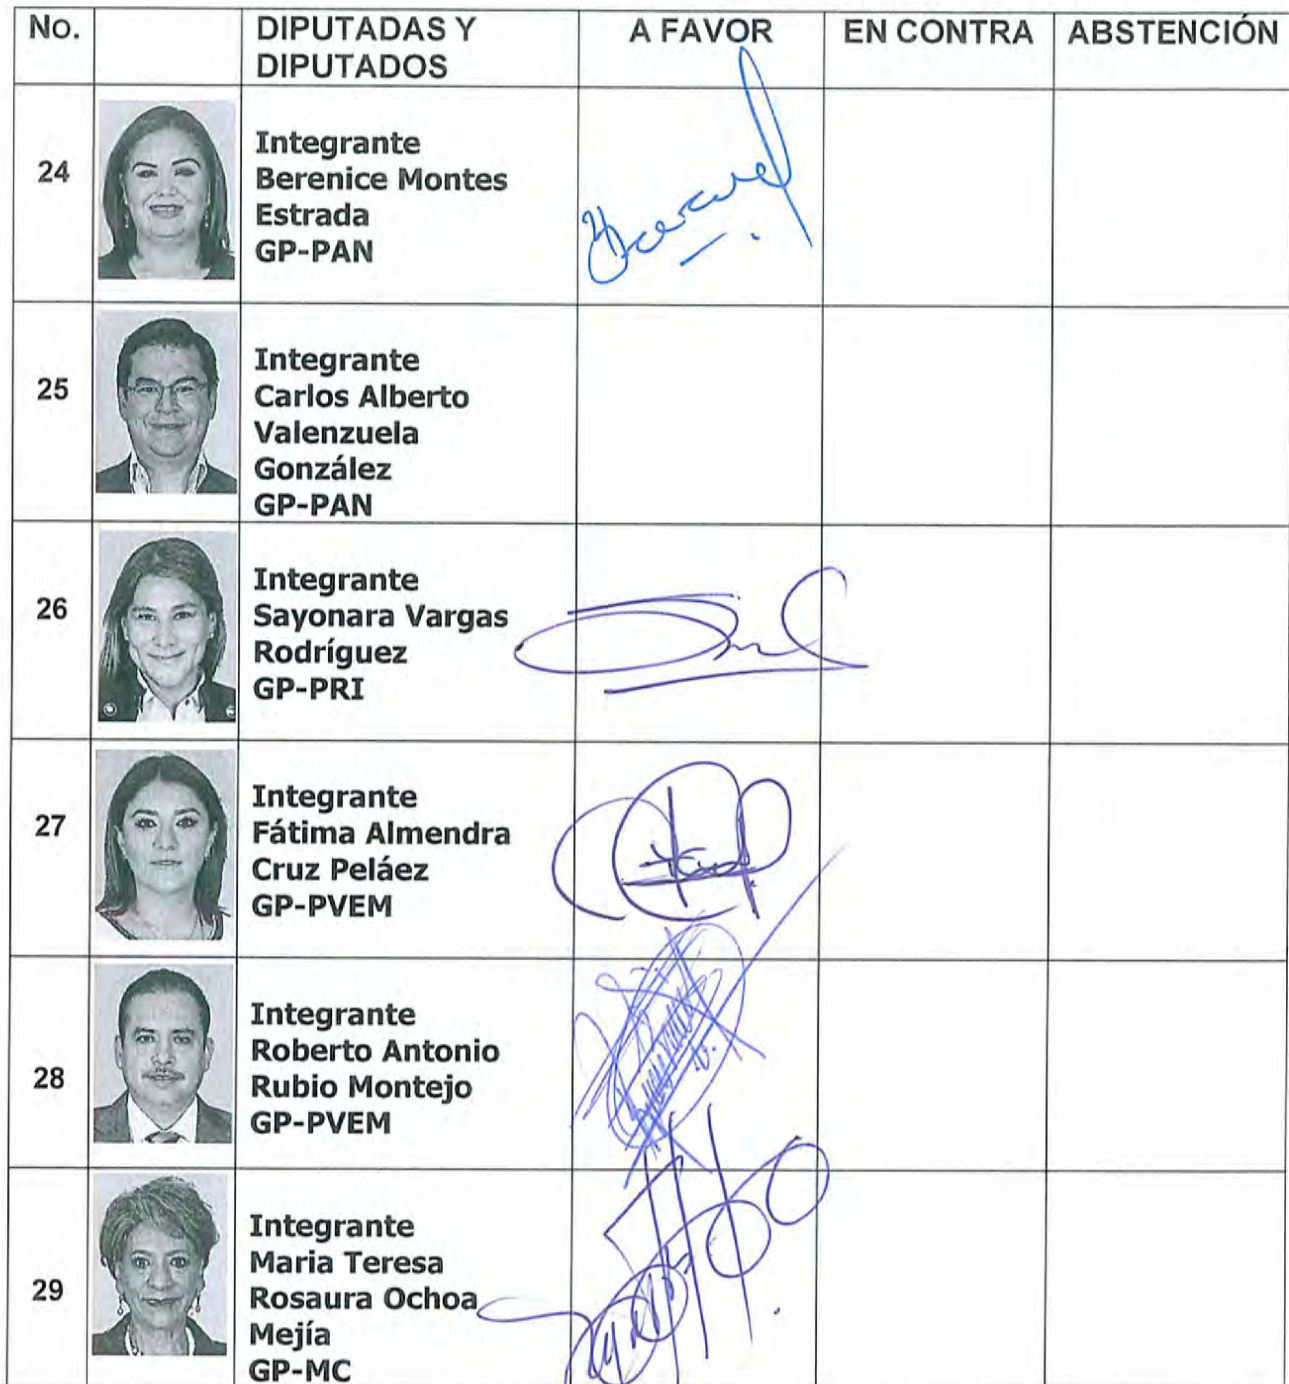 No. DIPUTADAS Y DIPUTADOS A FAVOR EN CONTRA ABSTENCIÓN
24
Integrante
Berenice Montes
Estrada
GP-PAN
25
Integrante
Carlos Alberto
Valenzuela
González
GP-PAN
26
Integrante
Sayonara Vargas
Rodríguez
GP-PRI
27
Integrante
Fátima Almendra
Cruz Peláez
GP-PVEM
28
Integrante
Roberto Antonio
Rubio Montejo
GP-PVEM
29
Integrante
Maria Teresa
Rosaura Ochoa
Mejía
GP-MC